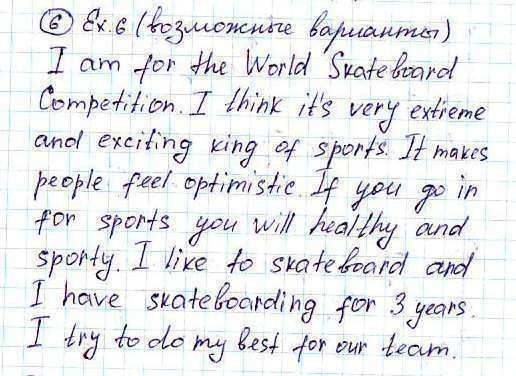 ⑥ Ex. 6 (возможные варианты)
I am for the World Skateboard
Competition. I think it's very extreme
and exciting king of sports. It makes
people feel optimistic. If you go in
for sports you will healthy and
sporty. I like to skateboard and
I have skateboarding for 3 years.
I try to do my best for our team.